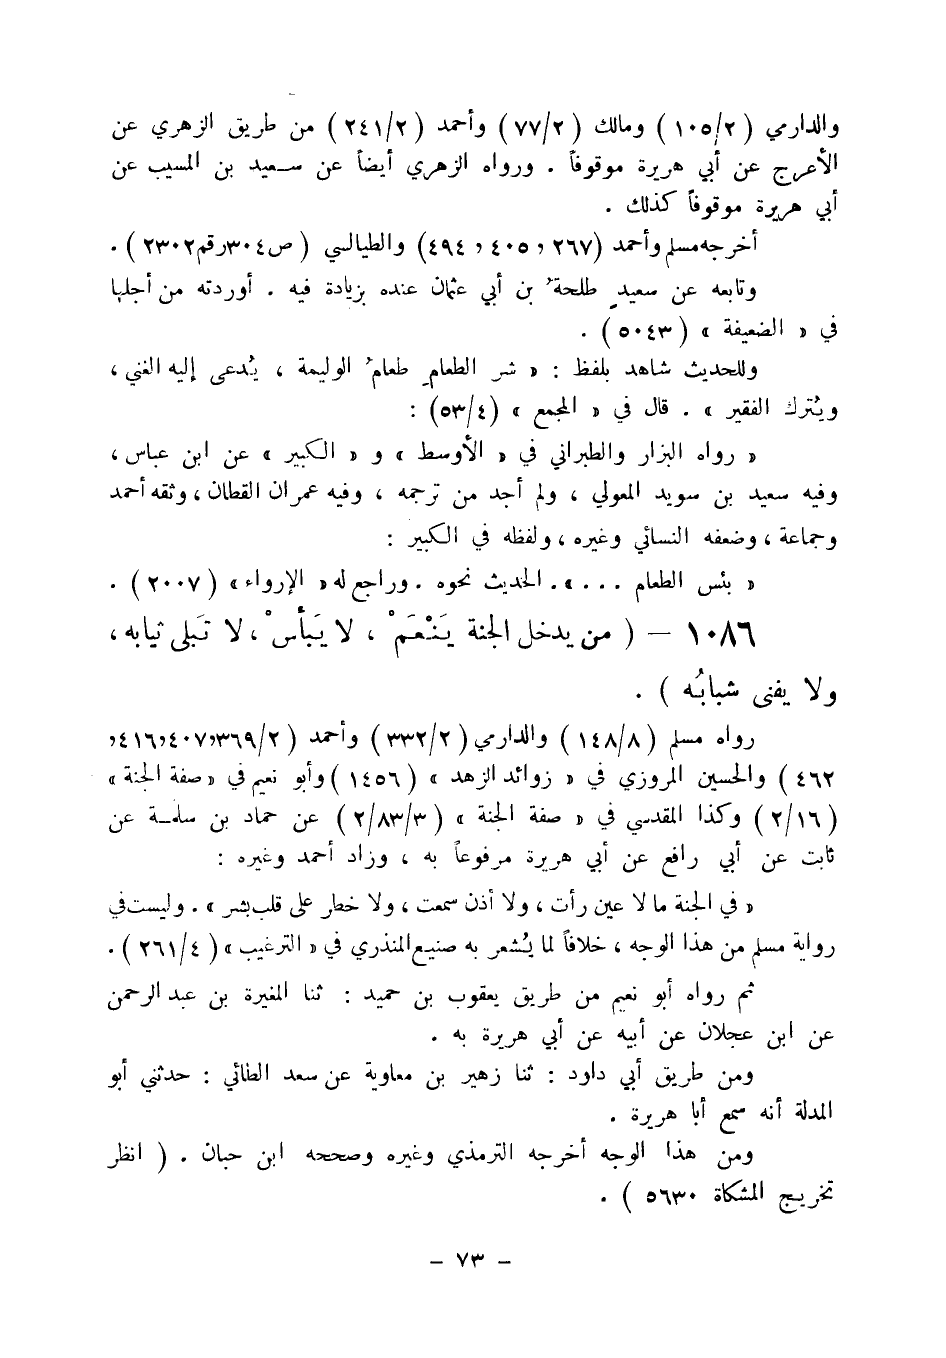 والدارمي ( ٢/١٠٥ ) ومالك ( ٢/٧٧ ) وأحمد ( ٢/٢٤١ ) من طريق الزهري عن
الأعرج عن أبي هريرة موقوفاً . ورواه الزهري أيضاً عن سعيد بن المسيب عن
أبي هريرة موقوفاً كذلك .
أخرجه مسلم وأحمد (٢٦٧ ، ٤٠٥ ، ٤٩٤) والطيالسي ( ص٣٠٤رقم٢٣٠٢ ) .
وتابعه عن سعيدٍ طلحةُ بن أبي عثمان عنده بزيادة فيه . أوردته من أجلها
في « الضعيفة » ( ٥٠٤٣ ) .
وللحديث شاهد بلفظ : « شر الطعامِ طعامُ الوليمة ، يُدعى إليه الغني ،
ويُترك الفقير » . قال في « المجمع » (٤/٥٣) :
« رواه البزار والطبراني في « الأوسط » و « الكبير » عن ابن عباس ،
وفيه سعيد بن سويد المعولي ، ولم أجد من ترجمه ، وفيه عمران القطان ، وثقه أحمد
وجماعة ، وضعفه النسائي وغيره ، ولفظه في الكبير :
« بئس الطعام . . . » . الحديث نحوه . وراجع له « الإرواء » ( ٢٠٠٧ ) .
١٠٨٦ – ( من يدخل الجنة يَنْعَمْ ، لا يَبأسْ ، لا تَبلى ثيابه ،
ولا يفنى شبابُه ) .
رواه مسلم ( ٨/١٤٨ ) والدارمي ( ٢/٣٣٢ ) وأحمد ( ٢/٣٦٩،٤٠٧،٤١٦،
٤٦٢ ) والحسين المروزي في « زوائد الزهد » ( ١٤٥٦ ) وأبو نعيم في « صفة الجنة »
( ١٦/٢ ) وكذا المقدسي في « صفة الجنة » ( ٣/٨٣/٢ ) عن حماد بن سلمة عن
ثابت عن أبي رافع عن أبي هريرة مرفوعاً به ، وزاد أحمد وغيره :
« في الجنة ما لا عين رأت ، ولا أذن سمعت ، ولا خطر على قلب بشر » . وليست في
رواية مسلم من هذا الوجه ، خلافاً لما يُشعر به صنيع المنذري في « الترغيب » ( ٤/٢٦١ ) .
ثم رواه أبو نعيم من طريق يعقوب بن حميد : ثنا المغيرة بن عبد الرحمن
عن ابن عجلان عن أبيه عن أبي هريرة به .
ومن طريق أبي داود : ثنا زهير بن معاوية عن سعد الطائي : حدثني أبو
المدلة أنه سمع أبا هريرة .
ومن هذا الوجه أخرجه الترمذي وغيره وصححه ابن حبان . ( انظر
تخريج المشكاة ٥٦٣٠ ) .
– ٧٣ –